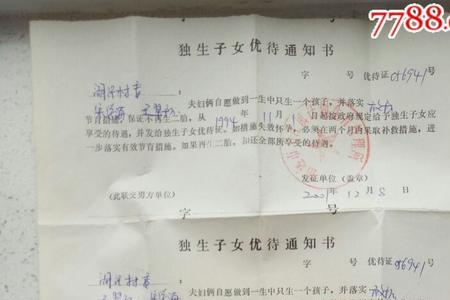 7788.
独生子女优待通知书
字 号 优待证056941号
夫妇俩自愿做到一生中只生一个孩子，并落实
节育措施，保证不再生二胎，从1994年11月1日起按政府规定给予独生子女应
享受的待遇，并发给独生子女优待证。如措施失败怀孕，必须在两个月内采取补救措施，进
一步落实有效节育措施。如果再生二胎，扣还全部所享受的待遇。
发证单位（盖章）
（此联交男方单位） 2001年12月8日
字 号
独生子女优待通知书
字 号 优待证056941号
夫妇俩自愿做到一生中只生一个孩子，并落实